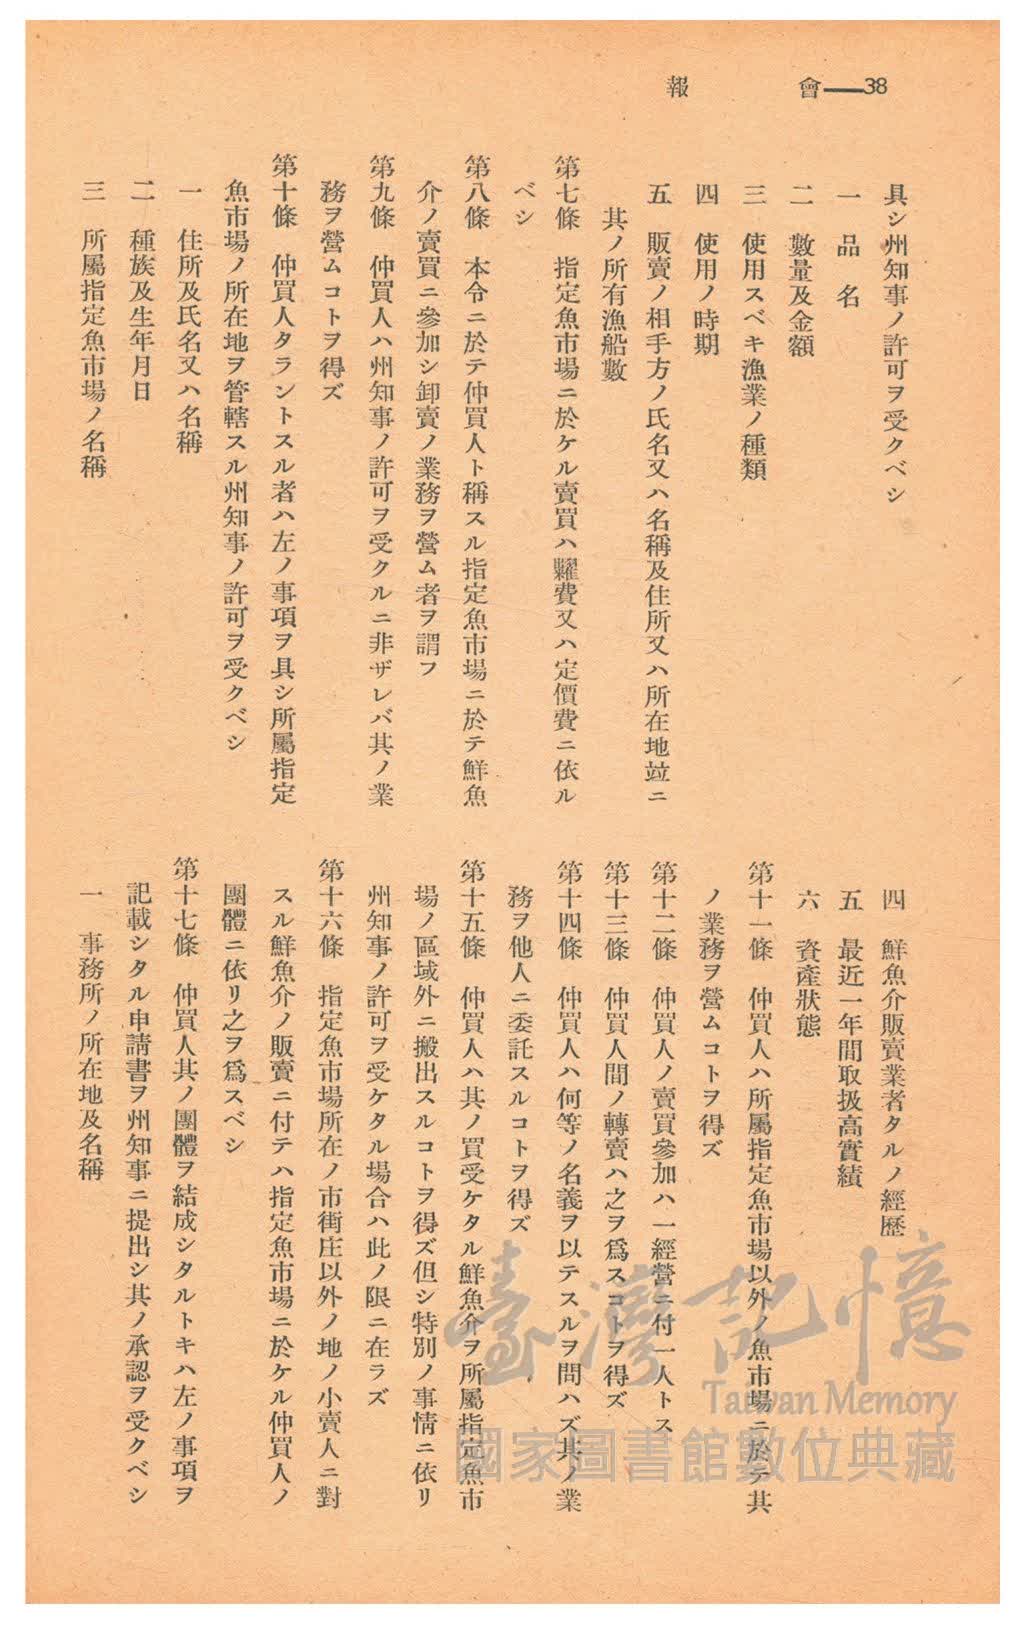 會報 — 38
具シ州知事ノ許可ヲ受クベシ
一　品　名
二　數量及金額
三　使用スベキ漁業ノ種類
四　使用ノ時期
五　販賣ノ相手方ノ氏名又ハ名稱及住所又ハ所在地竝ニ
其ノ所有漁船數
第七條　指定魚市場ニ於ケル賣買ハ糶費又ハ定價費ニ依ル
ベシ
第八條　本令ニ於テ仲買人ト稱スル指定魚市場ニ於テ鮮魚
介ノ賣買ニ參加シ卸賣ノ業務ヲ營ム者ヲ謂フ
第九條　仲買人ハ州知事ノ許可ヲ受クルニ非ザレバ其ノ業
務ヲ營ムコトヲ得ズ
第十條　仲買人タラントスル者ハ左ノ事項ヲ具シ所屬指定
魚市場ノ所在地ヲ管轄スル州知事ノ許可ヲ受クベシ
一　住所及氏名又ハ名稱
二　種族及生年月日
三　所屬指定魚市場ノ名稱
四　鮮魚介販賣業者タルノ經歷
五　最近一年間取扱高實績
六　資產狀態
第十一條　仲買人ハ所屬指定魚市場以外ノ魚市場ニ於テ其
ノ業務ヲ營ムコトヲ得ズ
第十二條　仲買人ノ賣買參加ハ一經營ニ付一人トス
第十三條　仲買人間ノ轉賣ハ之ヲ爲スコトヲ得ズ
第十四條　仲買人ハ何等ノ名義ヲ以テスルヲ問ハズ其ノ業
務ヲ他人ニ委託スルコトヲ得ズ
第十五條　仲買人ハ其ノ買受ケタル鮮魚介ヲ所屬指定魚市
場ノ區域外ニ搬出スルコトヲ得ズ但シ特別ノ事情ニ依リ
州知事ノ許可ヲ受ケタル場合ハ此ノ限ニ在ラズ
第十六條　指定魚市場所在ノ市街庄以外ノ地ノ小賣人ニ對
スル鮮魚介ノ販賣ニ付テハ指定魚市場ニ於ケル仲買人ノ
團體ニ依リ之ヲ爲スベシ
第十七條　仲買人其ノ團體ヲ結成シタルトキハ左ノ事項ヲ
記載シタル申請書ヲ州知事ニ提出シ其ノ承認ヲ受クベシ
一　事務所ノ所在地及名稱
臺灣記憶
Taiwan Memory
國家圖書館數位典藏